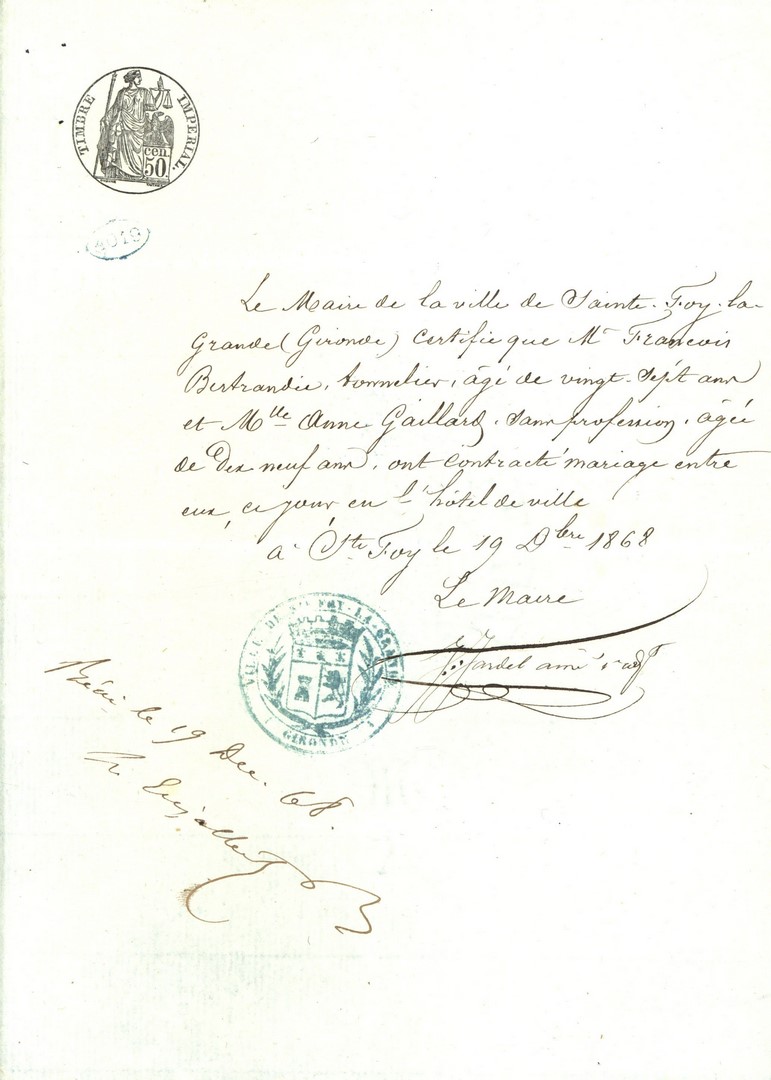 TIMBRE IMPERIAL.
cen.
50.
4019
Le Maire de la ville de Sainte-Foy-la-
Grande (Gironde) certifie que Mr Francois
Bertrandie, tonnelier, âgé de vingt-sept ans
et Mlle Anne Gaillard, sans profession, âgée
de Dix neuf ans, ont contracté mariage entre
eux, ce jour en l'hôtel de ville
à Ste Foy le 19 Dbre 1868
Le Maire
VILLE DE STE FOY-LA-GRANDE
GIRONDE
Jardel
Béni le 19 Dec. 68.